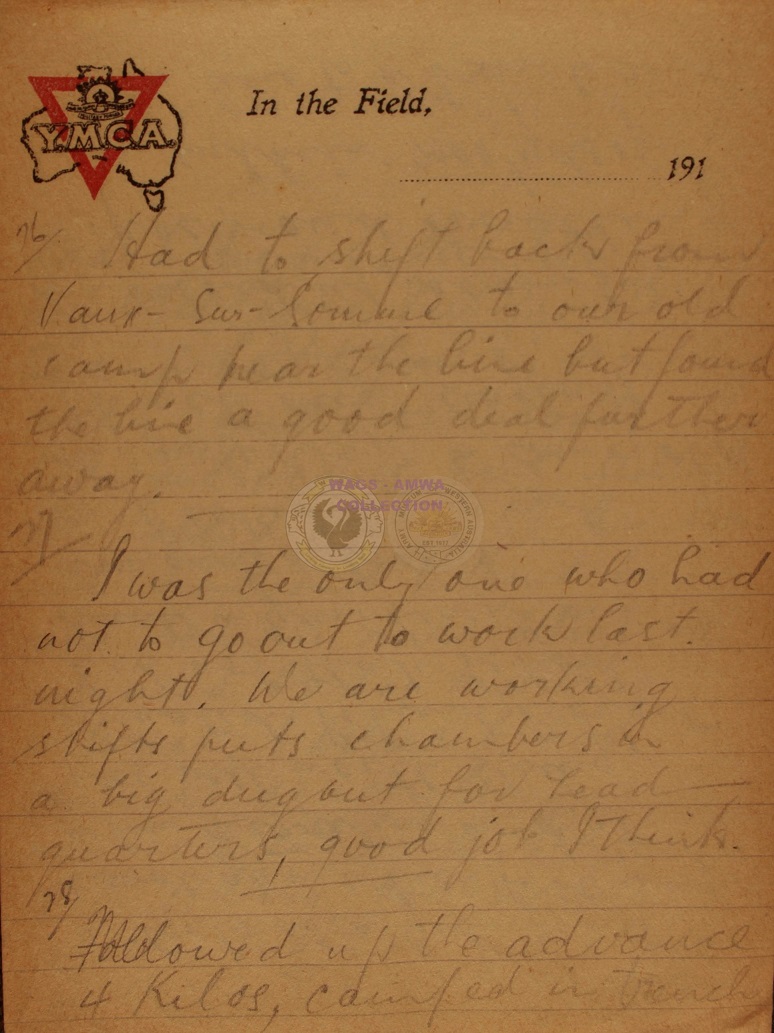 Y.M.C.A.
In the Field,
191
26/ Had to shift back from
Vaux-Sur-Somme to our old
camp near the line but found
the line a good deal further
away.
WAGS - AMWA
COLLECTION
27/
I was the only one who had
not to go out to work last
night. We are working
shifts puts chambers in
a big dugout for head
quarters, good job I think.
28/
Followed up the advance
4 Kilos, camped in trench